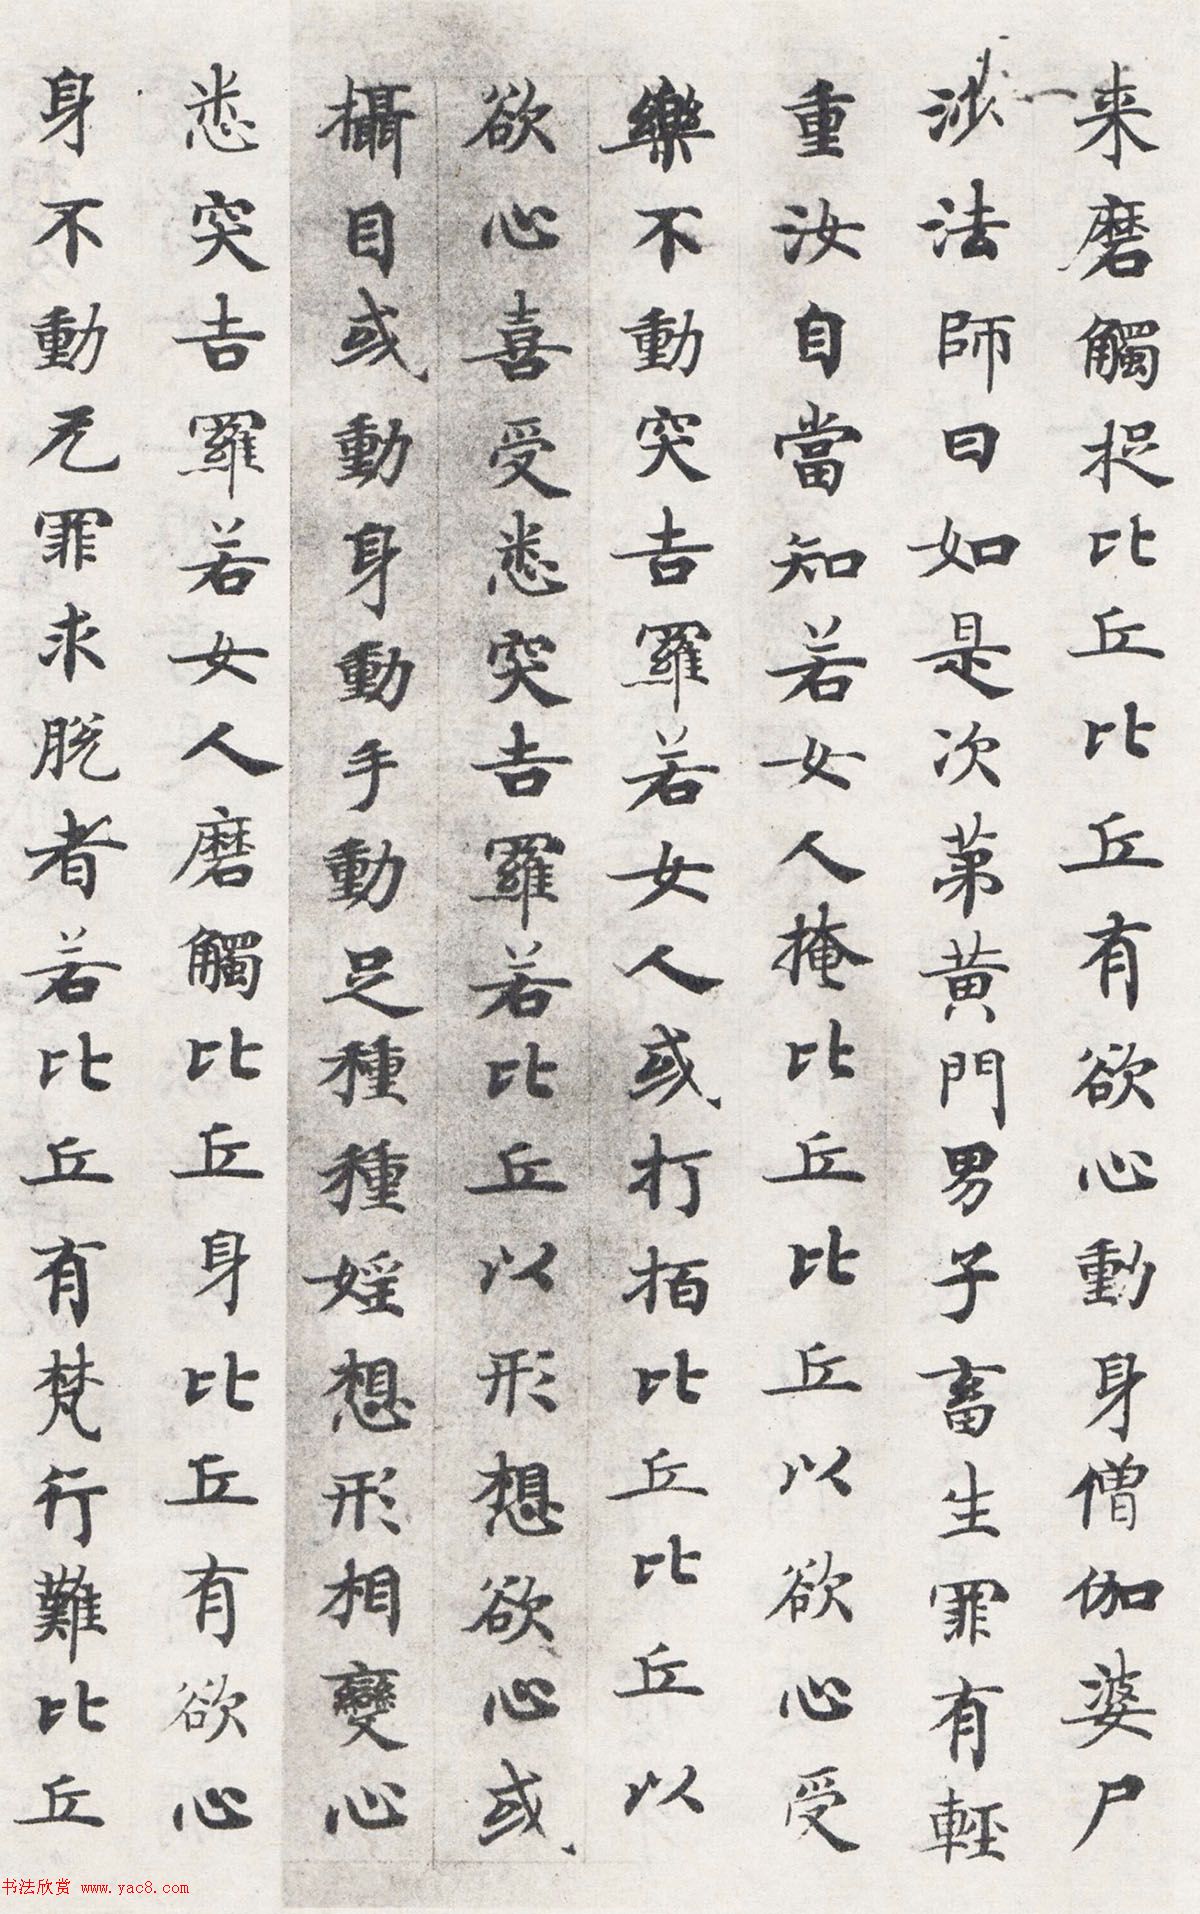 来磨觸捉比丘比丘有欲心動身僧伽婆尸
沙法師曰如是次苐黄門男子畜生罪有輕
重汝自當知若女人掩比丘比丘以欲心受
樂不動突吉羅若女人或打拍比丘比丘以
欲心喜受悉突吉羅若比丘以形想欲心或
攝目或動身動手動足種種婬想形相變心
悉突吉羅若女人磨觸比丘身比丘有欲心
身不動无罪求脱者若比丘有梵行難比丘
书法欣赏 www.yac8.com